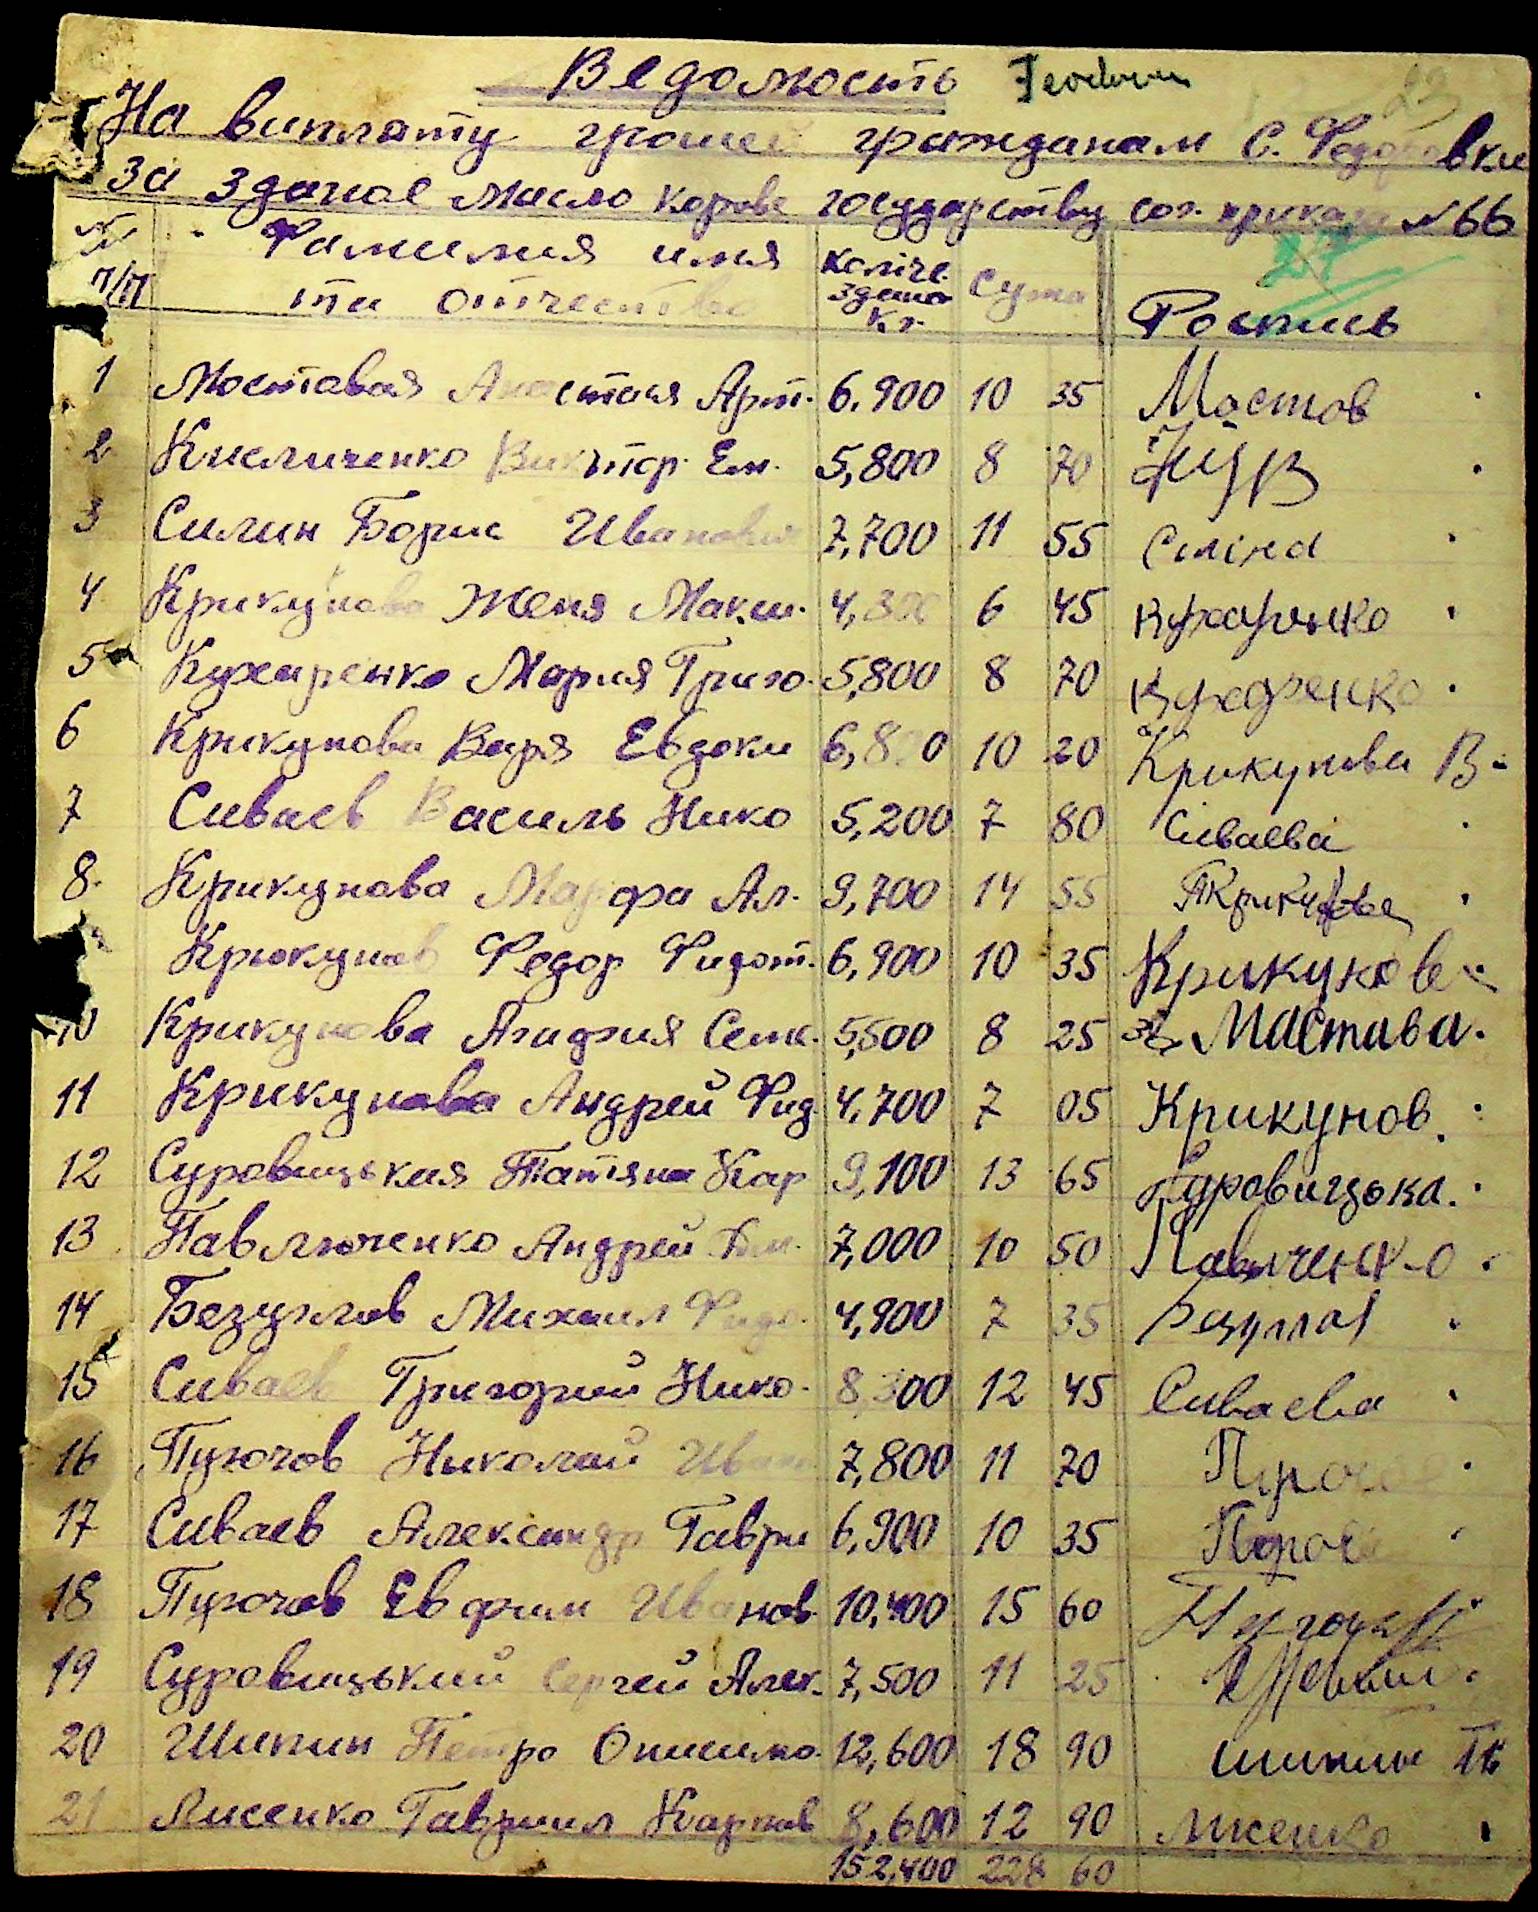 Ведомость
На виплату грошей гражданам с. Федоровки
За здание масло коровье государству сог. приказа №66
№ п/п Фамилия имя ти отчество Количе. здано Кг. Сума Роспись
27
1 Мостовая Анастасия Арт. 6.900 10 35 Мостов
2 Кисличенко Виктор Ем. 5,800 8 70
3 Силин Борис Иванович 7,700 11 55 Сілiна
4 Крикунова Женя Макси. 4,300 6 45 Кухаренко
5 Кухаренко Мария Григо. 5,800 8 70 Кухаренко
6 Крикунова Варя Евдоки 6,800 10 20 Крикунова В
7 Сиваев Василь Нико 5,200 7 80 Сиваева
8. Крикунова Марфа Ал. 9,700 14 55
Крюкунов Федор Фидот. 6,900 10 35 Крикунове
10 Крикунова Агафия Семе. 5,500 8 25 за Мастава.
11 Крикунова Андрей Фид. 4,700 7 05 Крикунов.
12 Суровицькая Татяна Кар 9,100 13 65 Суровицька.
13 Павлюченко Андрей 7,000 10 50
14 Безуглов Михаил Фидо. 4,900 7 35
15 Сиваев Григорий Нико. 8,300 12 45 Сиваева
16 Пугочов Николай Иван 7,800 11 70
17 Сиваев Александр Гаври 6,900 10 35
18 Пугочов Евфим Иванов. 10,400 15 60
19 Суровицький Сергей Алек. 7,500 11 25
20 Шипин Петро Онисимо. 12,600 18 90
21 Лисенко Гавриил Карпов 8,600 12 90 Лисенко
152,400 228 60